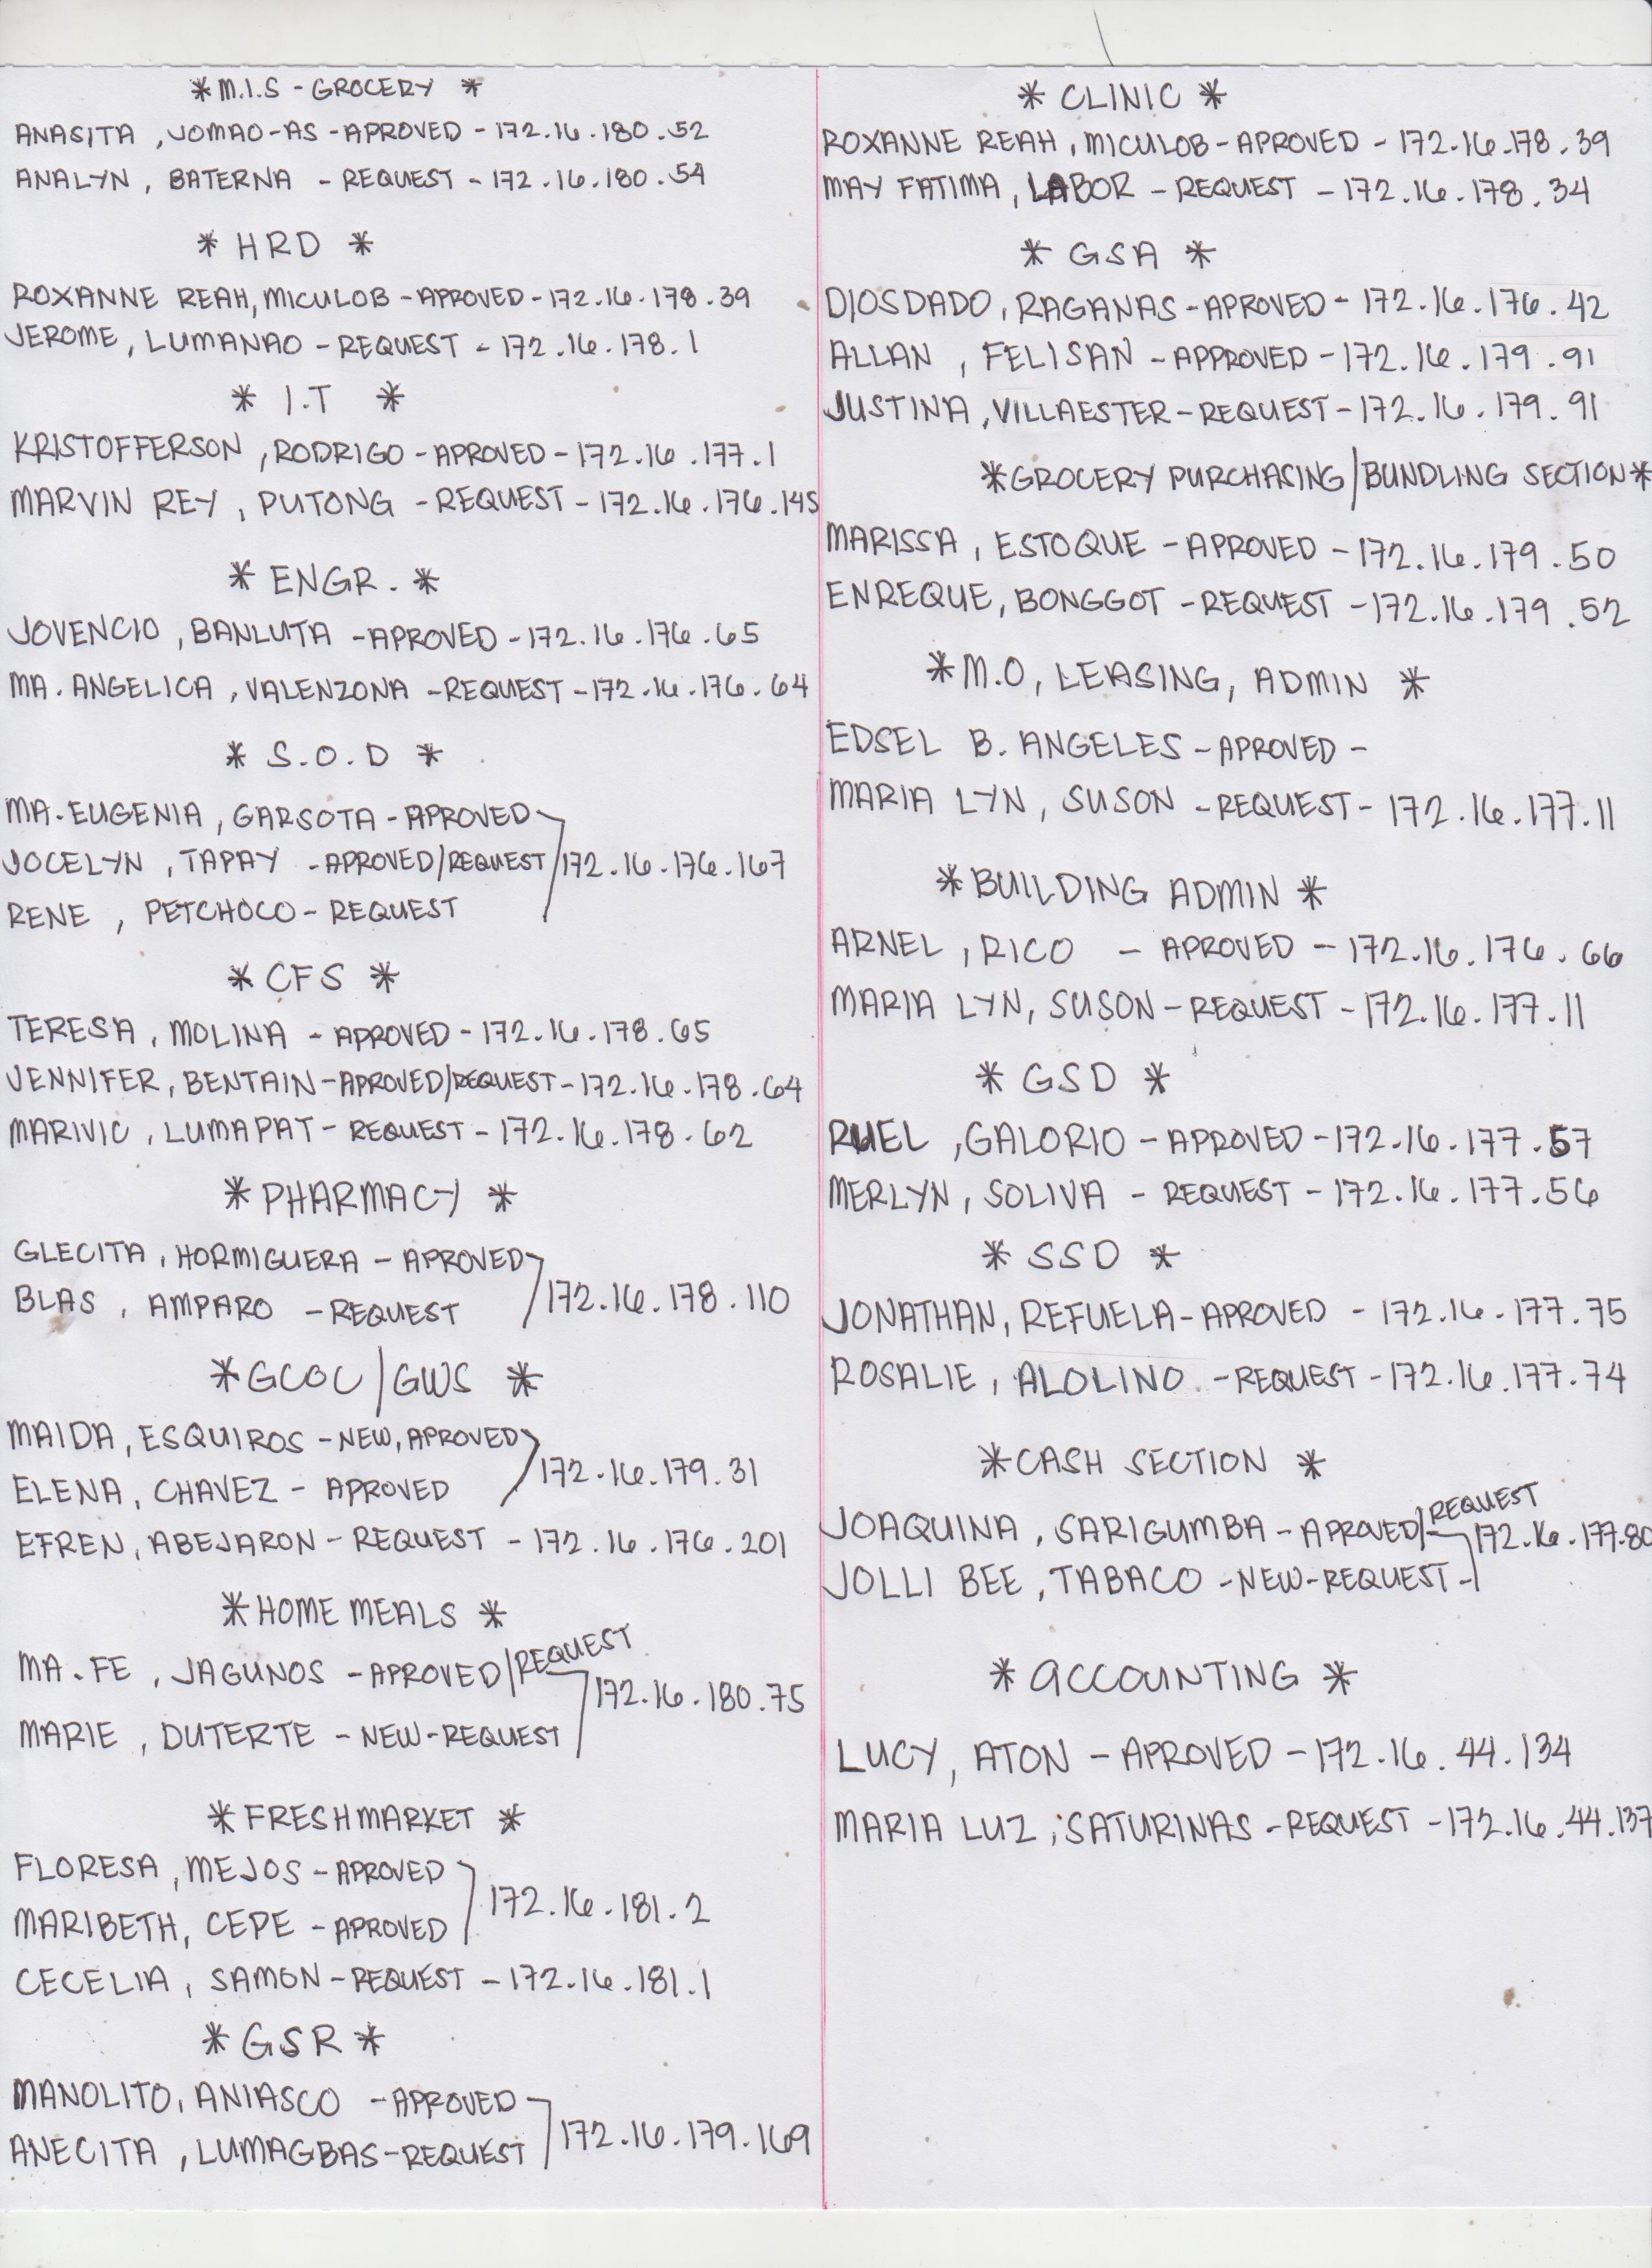 * M.I.S - GROCERY *
ANASITA , JOMAO-AS - APROVED - 172.16.180.52
ANALYN , BATERNA - REQUEST - 172.16.180.54
* HRD *
ROXANNE REAH, MICULOB - APROVED - 172.16.178.39
JEROME, LUMANAO - REQUEST - 172.16.178.1
* I.T *
KRISTOFFERSON , RODRIGO - APROVED - 172.16.177.1
MARVIN REY , PUTONG - REQUEST - 172.16.176.145
* ENGR. *
JOVENCIO , BANLUTA - APROVED - 172.16.176.65
MA. ANGELICA , VALENZONA - REQUEST - 172.16.176.64
* S.O.D *
MA. EUGENIA , GARSOTA - APROVED
JOCELYN , TAPAY - APROVED/REQUEST 172.16.176.167
RENE , PETCHOCO - REQUEST
* CFS *
TERESA , MOLINA - APROVED - 172.16.178.65
JENNIFER, BENTAIN - APROVED/REQUEST - 172.16.178.64
MARIVIC , LUMAPAT - REQUEST - 172.16.178.62
* PHARMACY *
GLECITA , HORMIGUERA - APROVED
BLAS , AMPARO - REQUEST 172.16.178.110
* GCOC / GWS *
MAIDA, ESQUIROS - NEW, APROVED
172.16.179.31
ELENA, CHAVEZ - APROVED
EFREN, ABEJARON - REQUEST - 172.16.176.201
* HOME MEALS *
MA. FE , JAGUNOS - APROVED/REQUEST
172.16.180.75
MARIE , DUTERTE - NEW-REQUEST
* FRESHMARKET *
FLORESA , MEJOS - APROVED
172.16.181.2
MARIBETH, CEPE - APROVED
CECELIA , SAMON - REQUEST - 172.16.181.1
* GSR *
MANOLITO, ANIASCO - APROVED
172.16.179.169
ANECITA , LUMAGBAS - REQUEST
* CLINIC *
ROXANNE REAH , MICULOB - APROVED - 172.16.178.39
MAY FATIMA , LABOR - REQUEST - 172.16.178.34
* GSA *
DIOSDADO, RAGANAS - APROVED - 172.16.176.42
ALLAN , FELISAN - APPROVED - 172.16.179.91
JUSTINA , VILLAESTER - REQUEST - 172.16.179.91
* GROCERY PURCHASING / BUNDLING SECTION *
MARISSA , ESTOQUE - APROVED - 172.16.179.50
ENREQUE, BONGGOT - REQUEST - 172.16.179.52
* M.O, LEASING, ADMIN *
EDSEL B. ANGELES - APROVED -
MARIA LYN, SUSON - REQUEST - 172.16.177.11
* BUILDING ADMIN *
ARNEL , RICO - APROVED - 172.16.176.66
MARIA LYN, SUSON - REQUEST - 172.16.177.11
* GSD *
RUEL , GALORIO - APROVED - 172.16.177.57
MERLYN , SOLIVA - REQUEST - 172.16.177.56
* SSD *
JONATHAN, REFUELA - APROVED - 172.16.177.75
ROSALIE , ALOLINO - REQUEST - 172.16.177.74
* CASH SECTION *
JOAQUINA , SARIGUMBA - APROVED/REQUEST 172.16.177.80
JOLLI BEE , TABACO - NEW-REQUEST -
* ACCOUNTING *
LUCY, ATON - APROVED - 172.16.44.134
MARIA LUZ , SATURINAS - REQUEST - 172.16.44.137